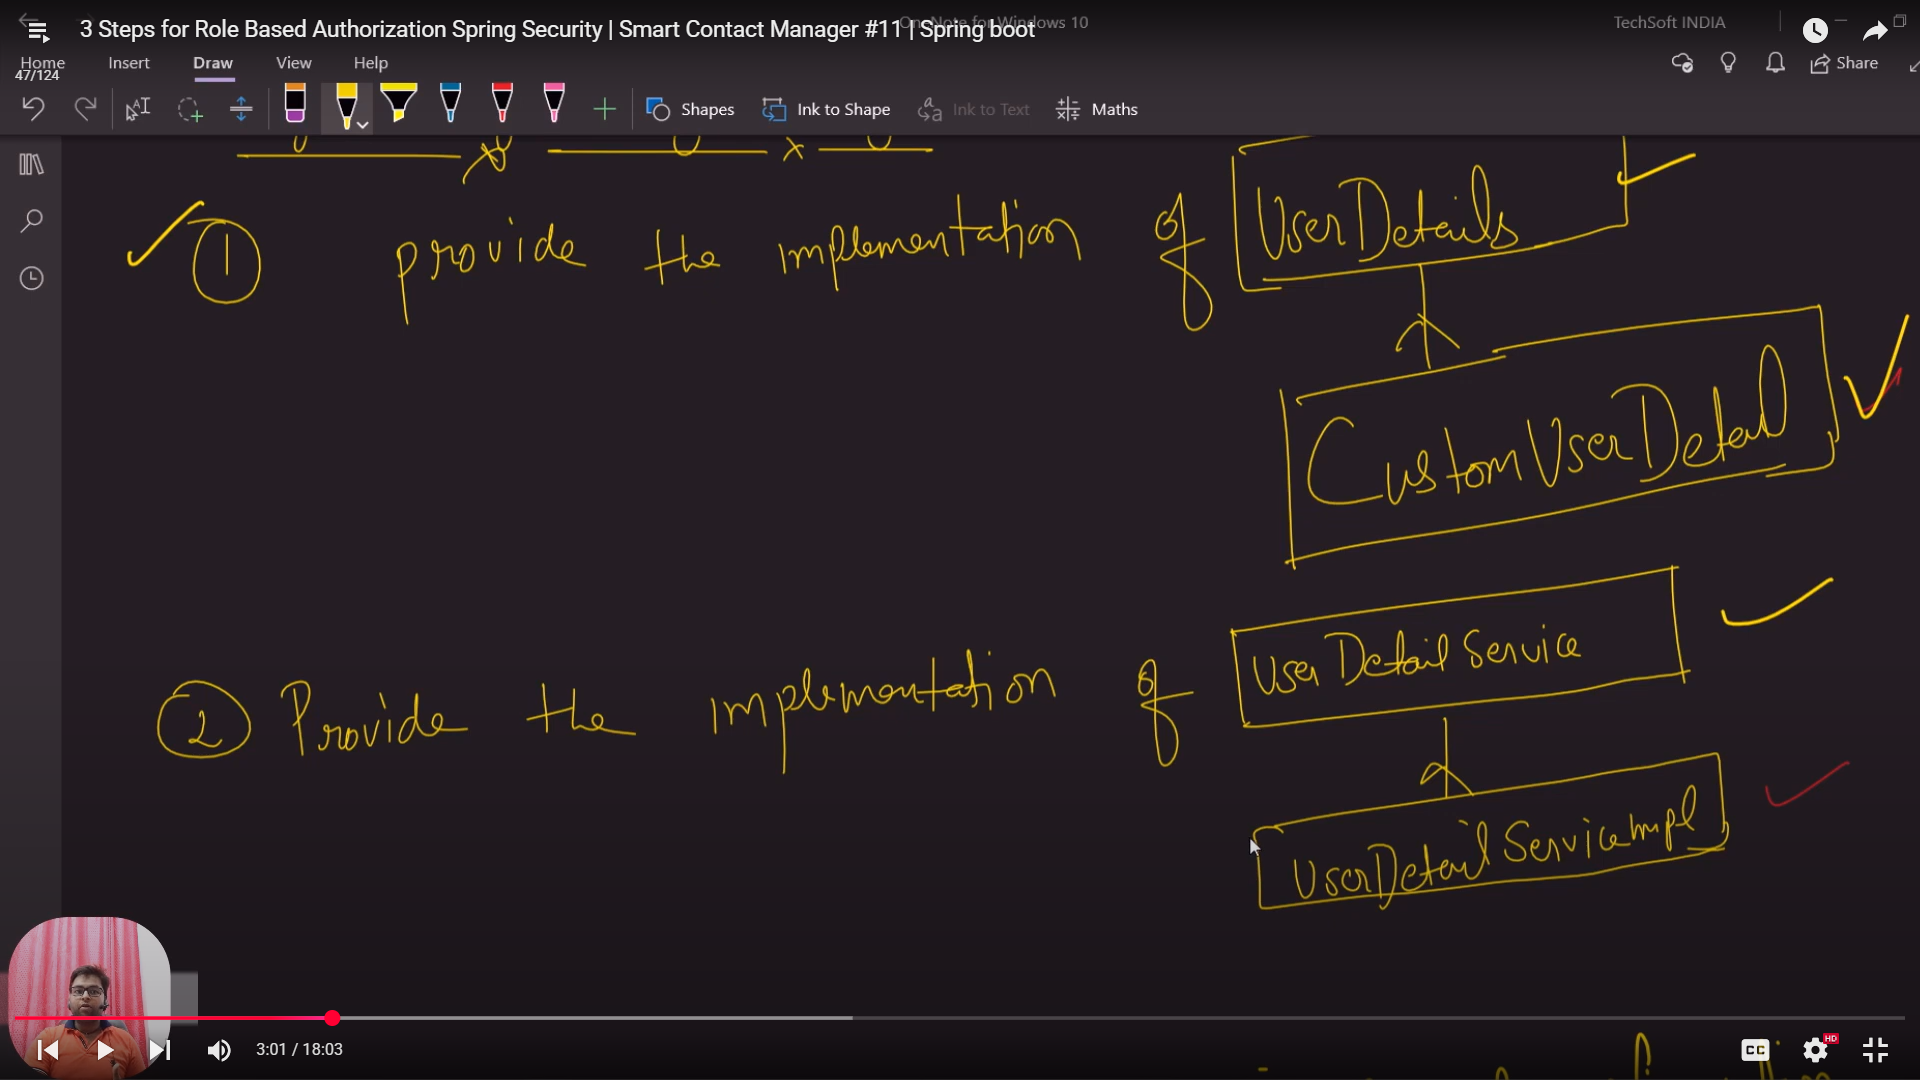 3 Steps for Role Based Authorization Spring Security | Smart Contact Manager #11 | Spring boot
OneNote for Windows 10
TechSoft INDIA
47/124
Home Insert Draw View Help
Share
Shapes Ink to Shape Ink to Text Maths
1 provide the implementation of UserDetails
CustomUserDetail
2 Provide the implementation of User Detail Service
UserDetail ServiceImpl
3:01 / 18:03
CC HD